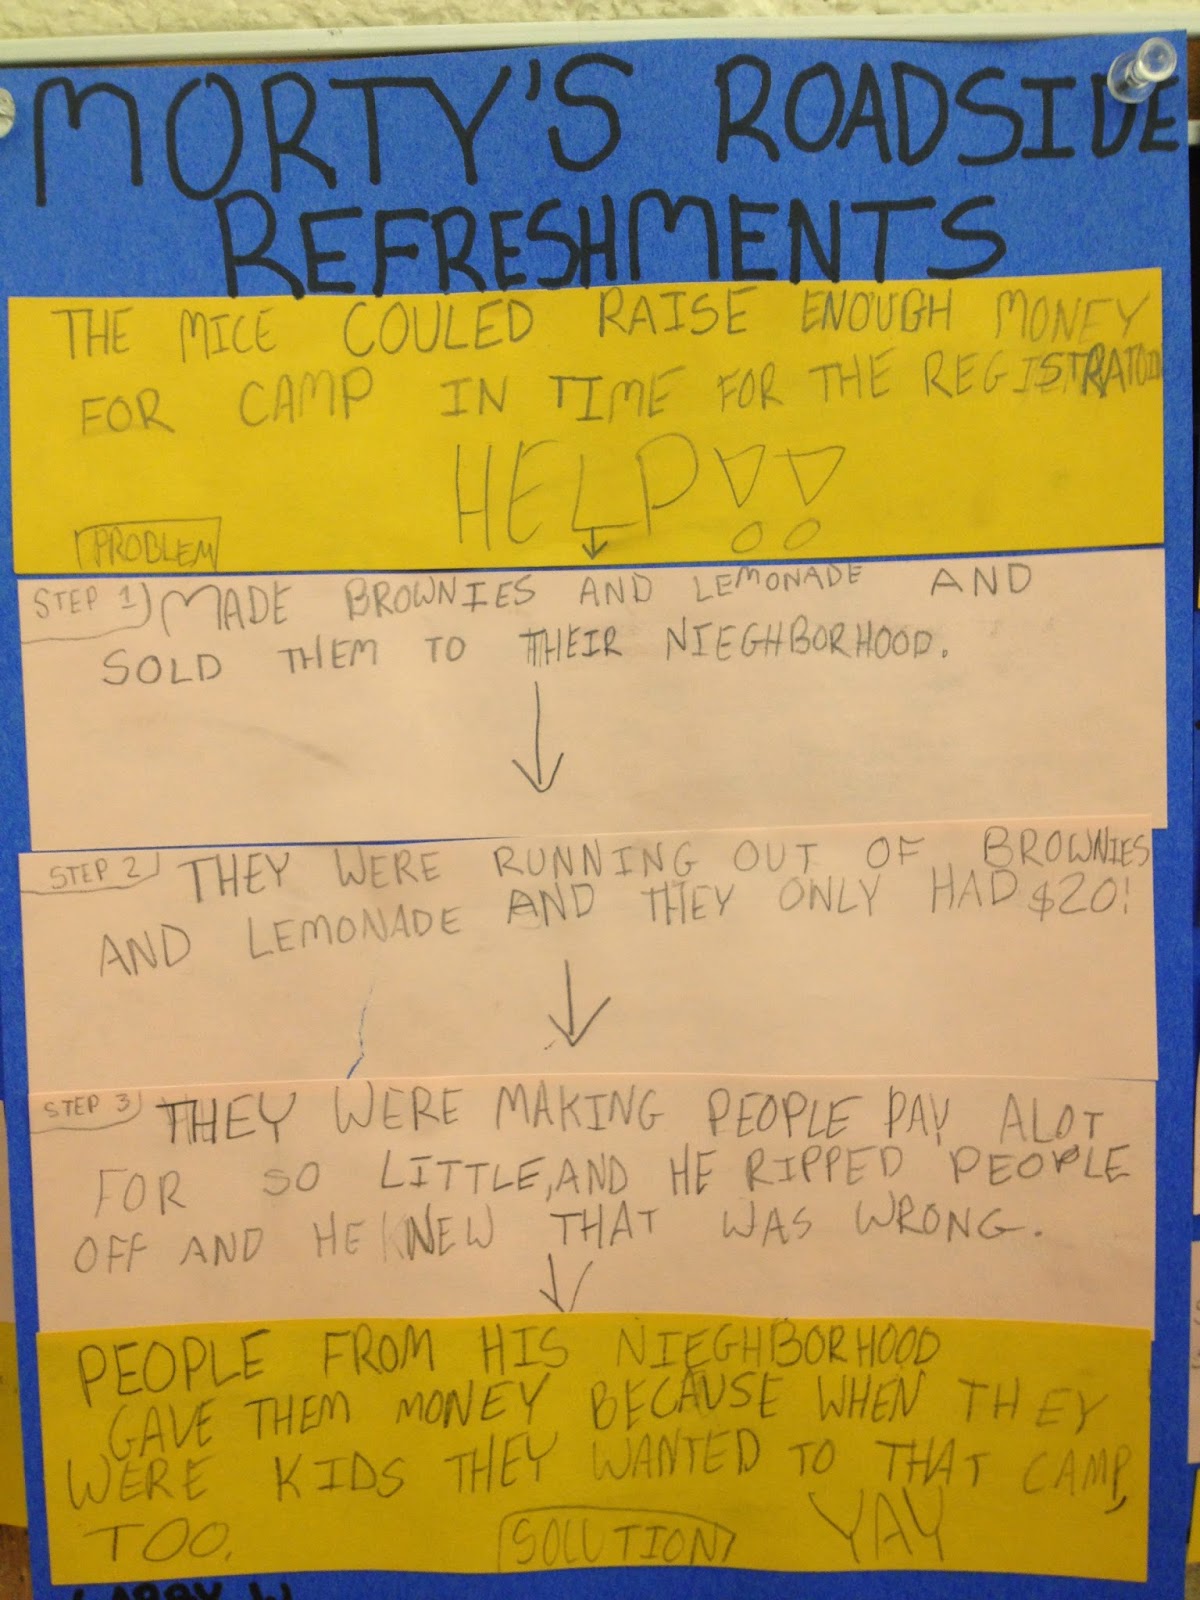 MORTY'S ROADSIDE
REFRESHMENTS
THE MICE COULED RAISE ENOUGH MONEY
FOR CAMP IN TIME FOR THE REGISTRATOIN
HELP!!
PROBLEM
STEP 1) MADE BROWNIES AND LEMONADE AND
SOLD THEM TO THEIR NIEGHBORHOOD.
STEP 2) THEY WERE RUNNING OUT OF BROWNIES
AND LEMONADE AND THEY ONLY HAD $20!
STEP 3) THEY WERE MAKING PEOPLE PAY ALOT
FOR SO LITTLE, AND HE RIPPED PEOPLE
OFF AND HE KNEW THAT WAS WRONG.
PEOPLE FROM HIS NIEGHBORHOOD
GAVE THEM MONEY BECAUSE WHEN THEY
WERE KIDS THEY WANTED TO THAT CAMP,
TOO. SOLUTION YAY